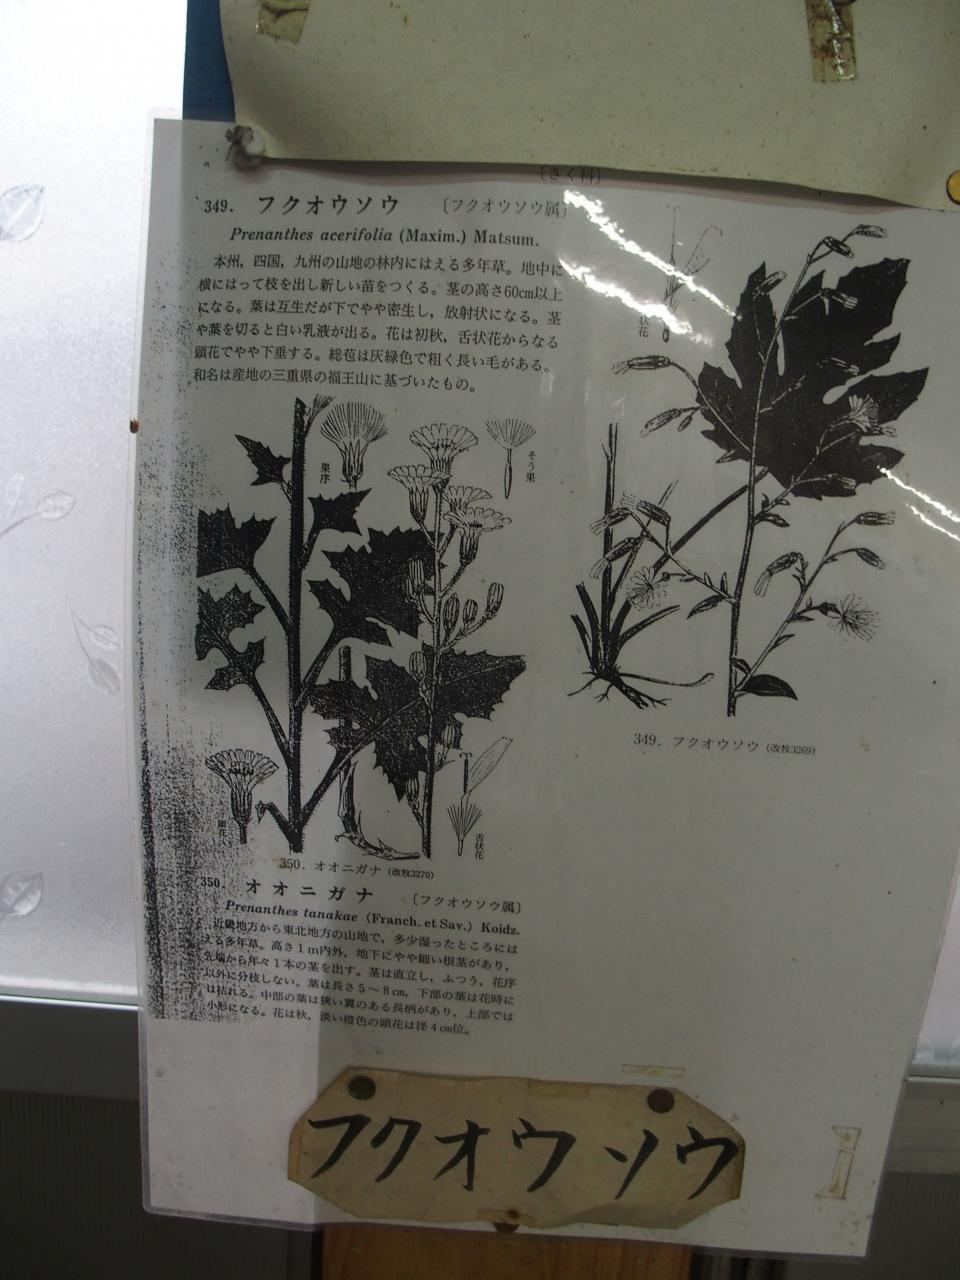 〔きく科〕
349. フクオウソウ 〔フクオウソウ属〕
Prenanthes acerifolia (Maxim.) Matsum.
本州，四国，九州の山地の林内にはえる多年草。地中に
横にはって枝を出し新しい苗をつくる。茎の高さ60cm以上
になる。葉は互生だが下でやや密生し，放射状になる。茎
や葉を切ると白い乳液が出る。花は初秋，舌状花からなる
頭花でやや下垂する。総苞は灰緑色で粗く長い毛がある。
和名は産地の三重県の福王山に基づいたもの。
果序
そう果
頭花
舌状花
350. オオニガナ（改牧3270）
350. オオニガナ 〔フクオウソウ属〕
Prenanthes tanakae (Franch. et Sav.) Koidz.
近畿地方から東北地方の山地で，多少湿ったところには
える多年草。高さ1m内外，地下にやや細い根茎があり，
先端から年々1本の茎を出す。茎は直立し，ふつう，花序
以外に分枝しない。葉は長さ5〜8cm，下部の葉は花時に
は枯れる。中部の葉は狭い翼のある長柄があり，上部では
小形になる。花は秋，淡い橙色の頭花は径4cm位。
状花
349. フクオウソウ（改牧3269）
フクオウソウ